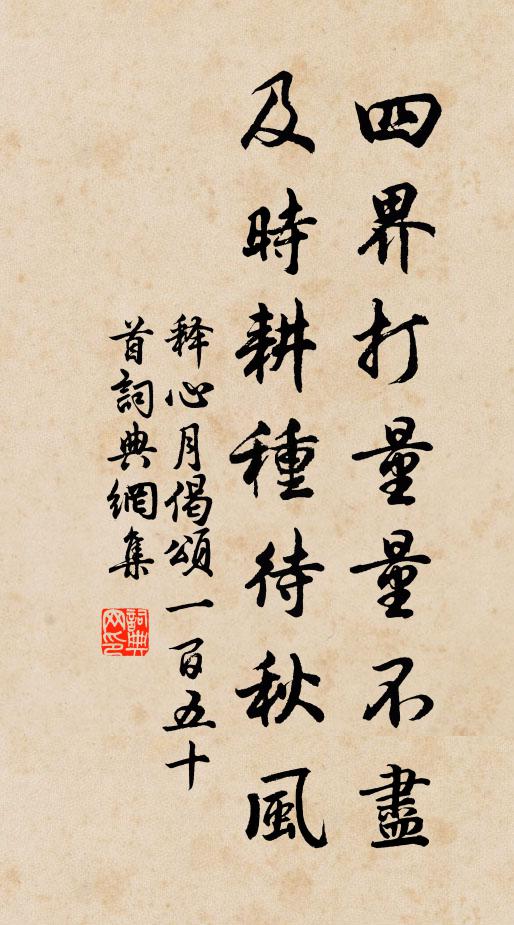 四界打量量不盡
及時耕種待秋風
释心月偈頌一百五十
首詞典網集
詞典
网印